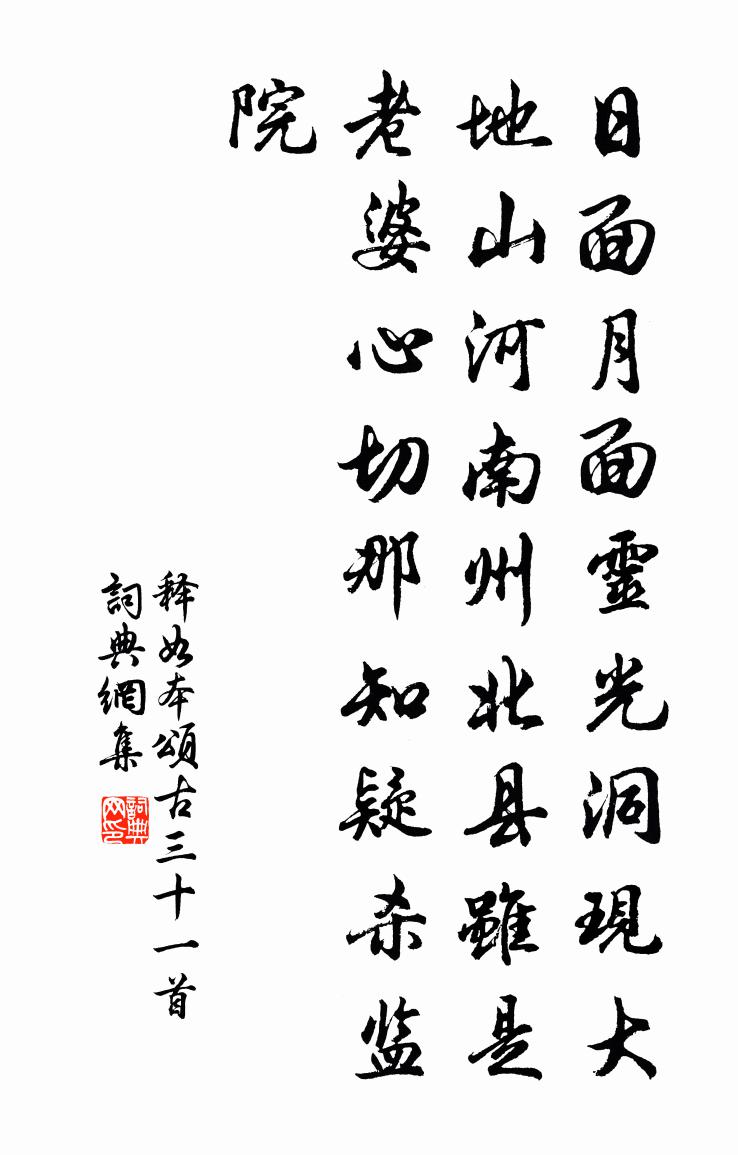 日面月面靈光洞現大
地山河南州北县雖是
老婆心切那知疑杀监
院
释如本頌古三十一首
詞典網集
詞典网印